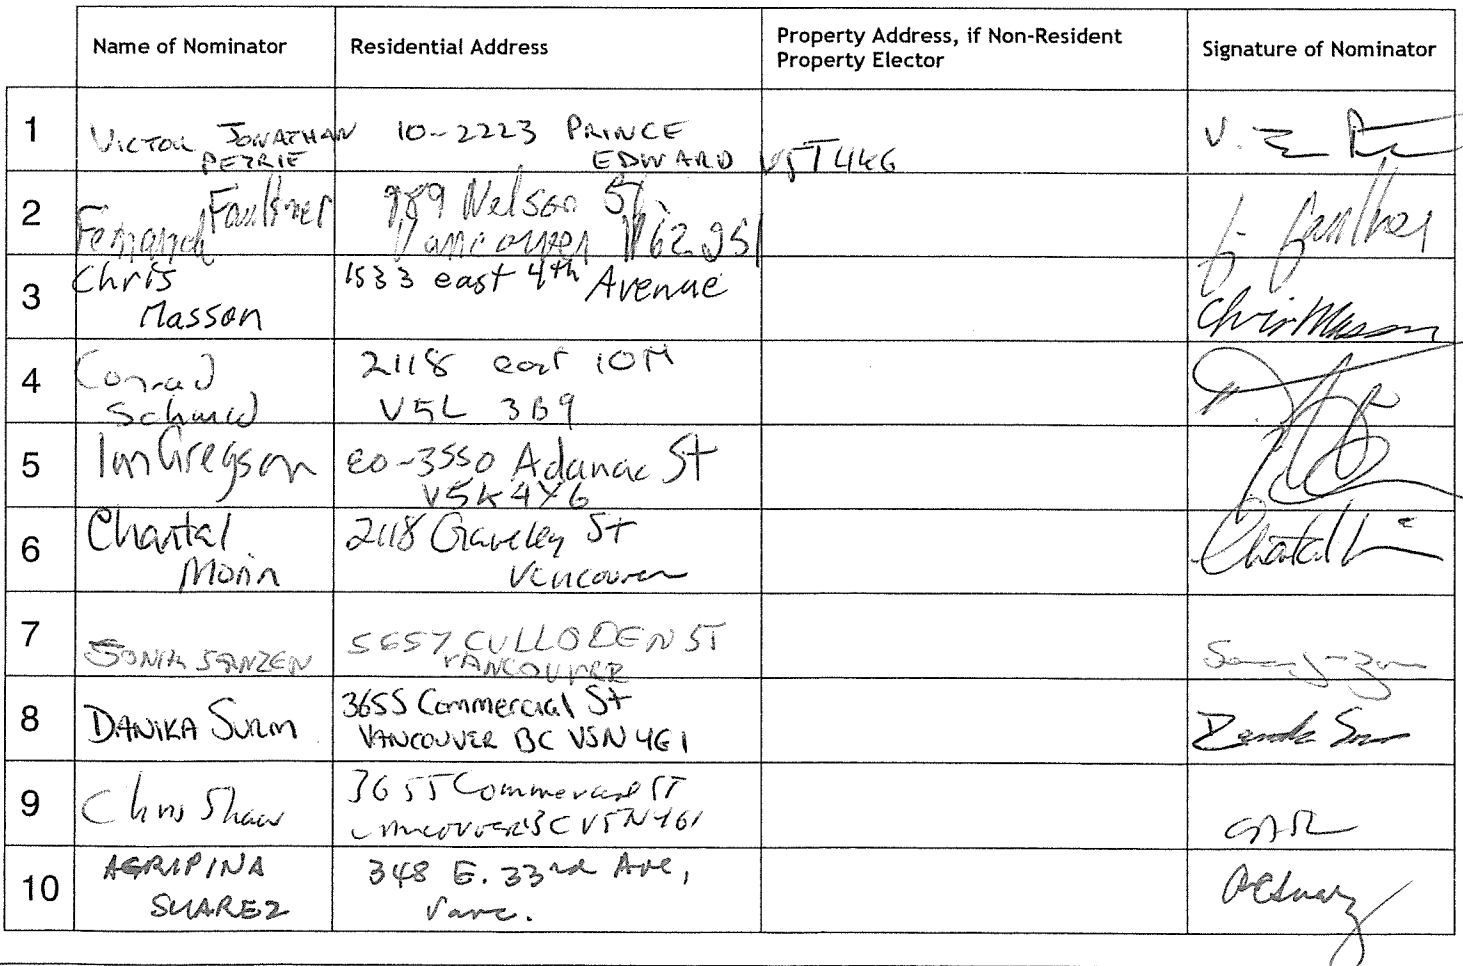 Name of Nominator
Residential Address
Property Address, if Non-Resident
Property Elector
Signature of Nominator
1
VICTOR JONATHAN
PETRIE
10-2223 PRINCE
EDWARD V5T4K6
2
Faulkner
989 Nelson St
Vancouver V6Z 2S1
3
Chris
Masson
1533 east 4th Avenue
Chris Masson
4
Conrad
Schmid
2118 east 10th
V5L 3B9
5
Ian Gregson
20-3550 Adanac St
V5K4X6
6
Chantal
Morin
2118 Graveley St
Vancouver
Chantal
7
SONIA JANZEN
5657 CULLODEN ST
VANCOUVER
8
DANIKA SURM
3655 Commercial St
VANCOUVER BC V5N 4G1
9
Chris Shaw
3655 Commercial ST
VANCOUVER BC V5N 4G1
10
AGRIPINA
SUAREZ
348 E. 33rd Ave,
Vanc.